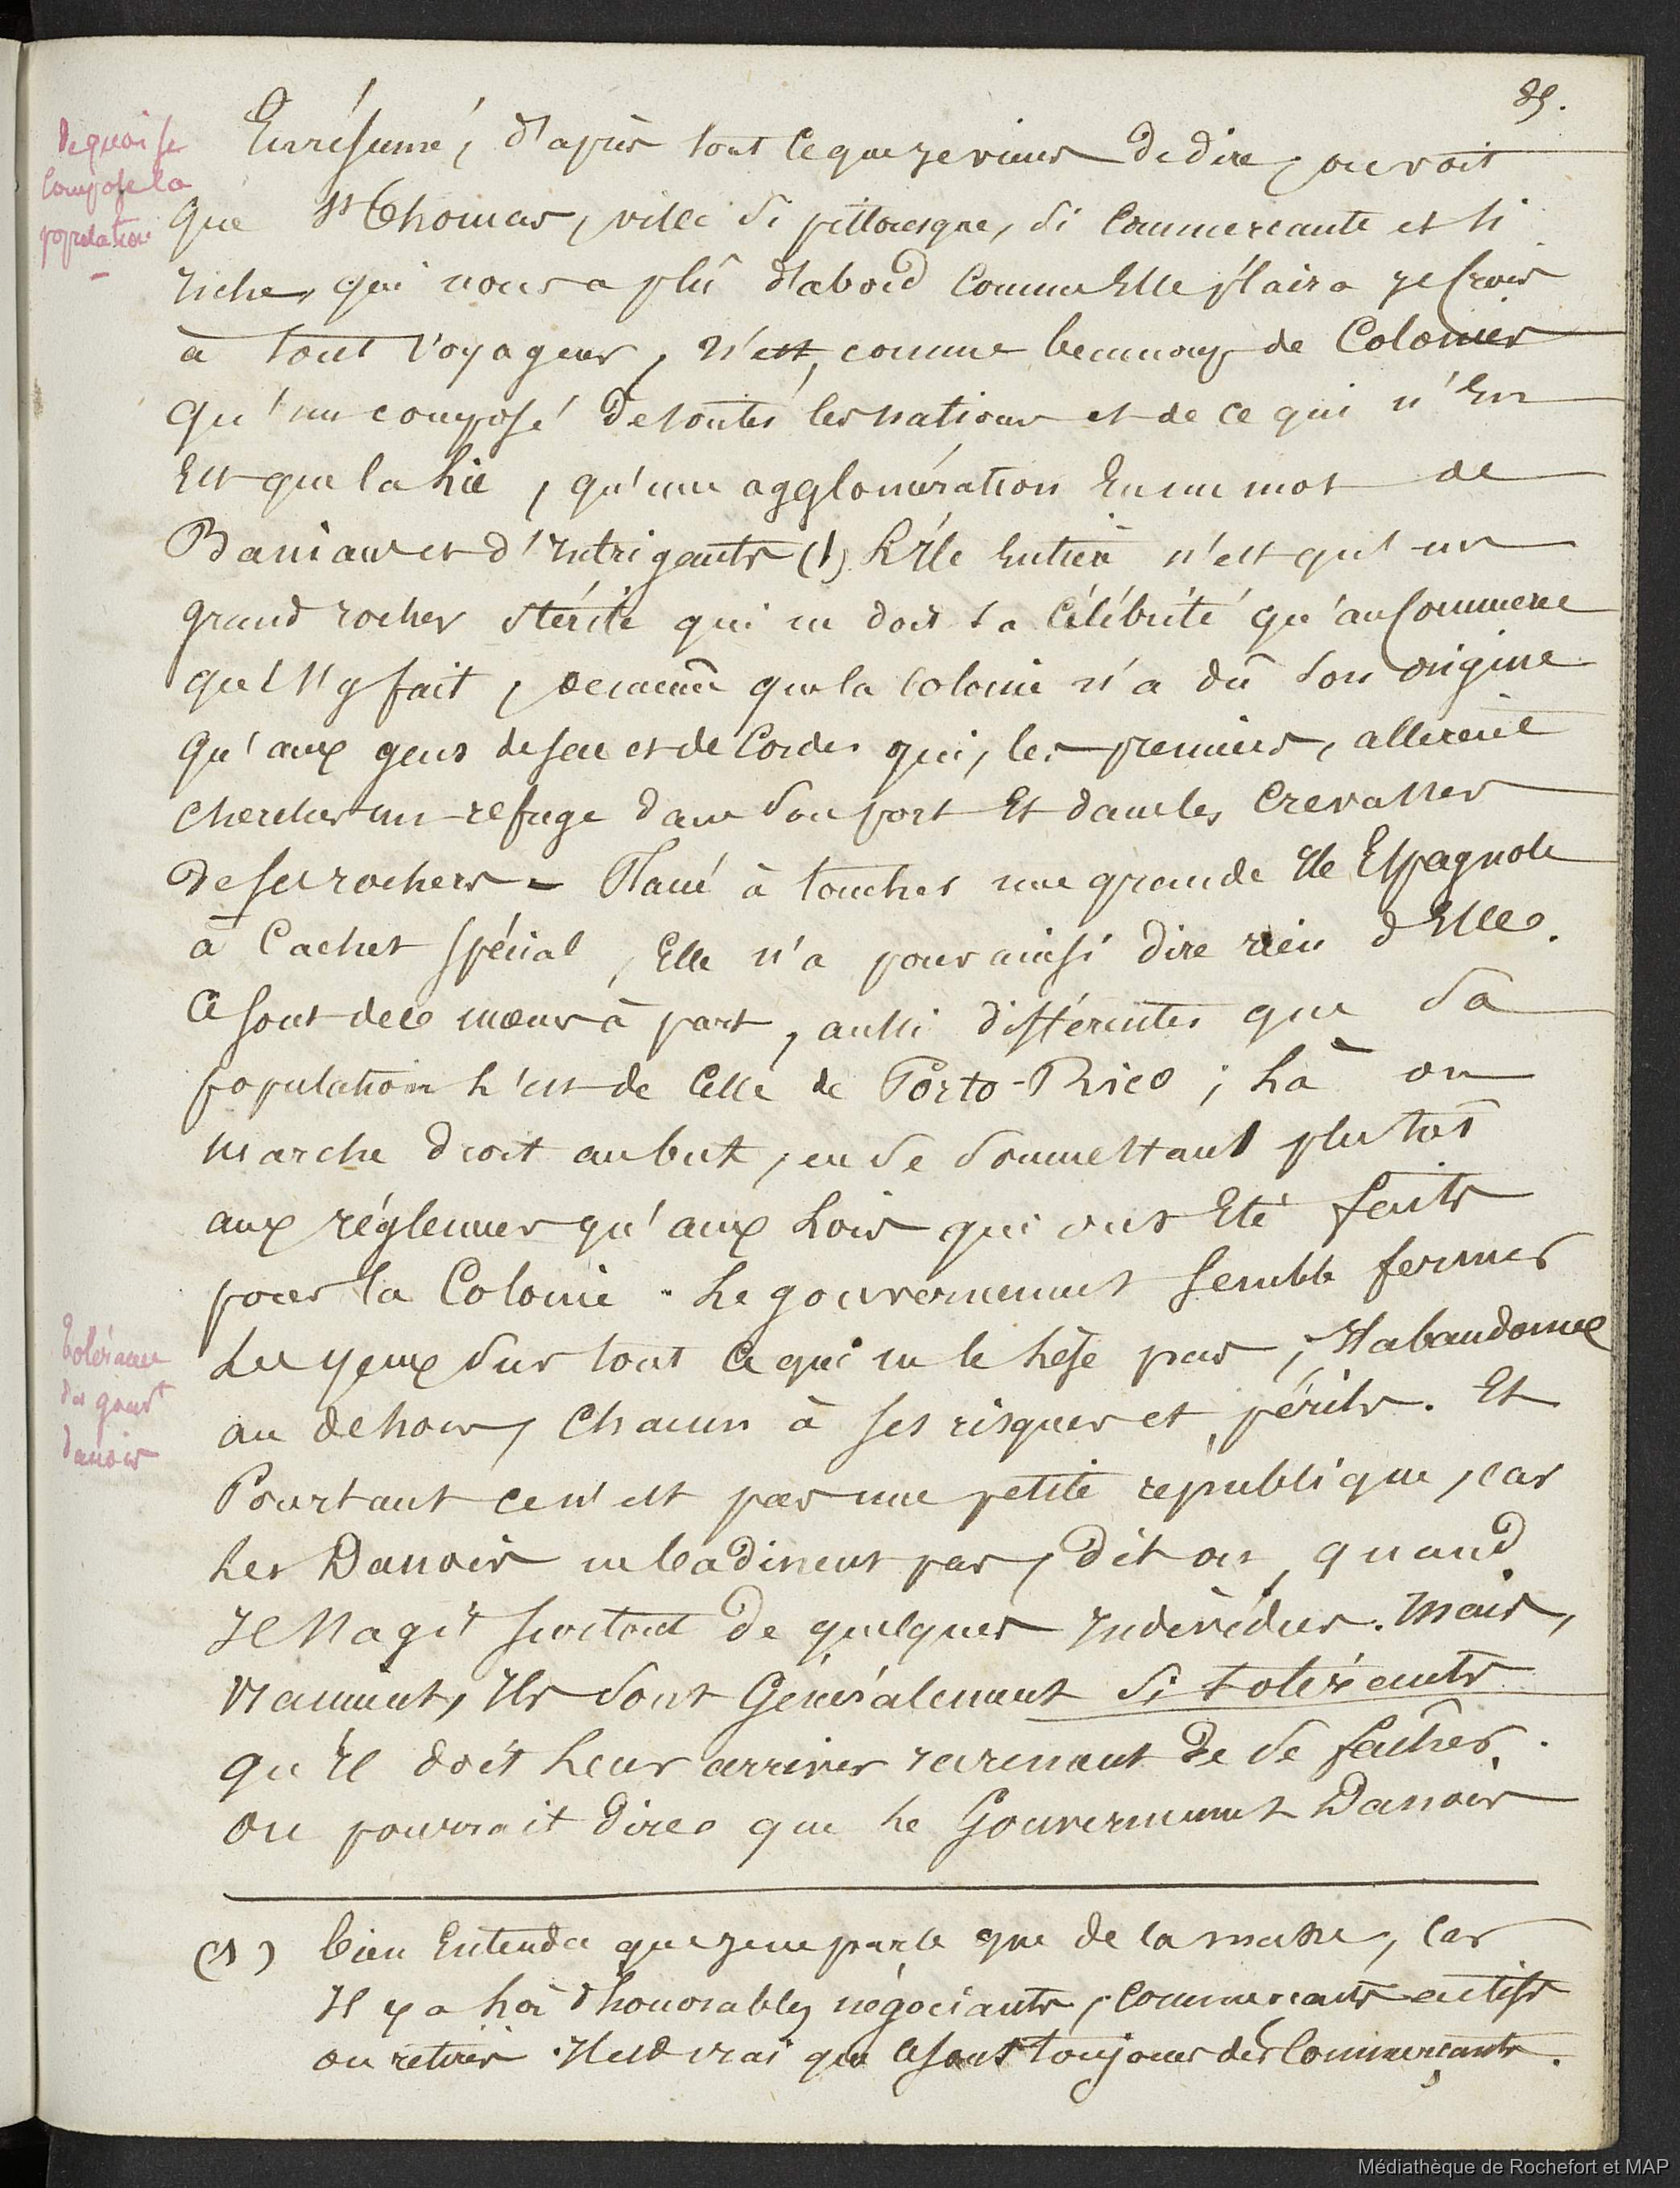 85.
De quoi se
compose la
population
En résumé, d'après tout ce que je viens de dire, on voit
que St Thomas, ville si pittoresque, si commerçante et si
riche, qui nous a plû d'abord comme Elle plaira je crois
à tout voyageur, n'est, comme beaucoup de Colonies
qu'un composé de toutes les nations et de ce qui n'En
Est que la Lie, qu'une agglomération En un mot de
Banians et d'Intrigants (1) L'Ile Entière n'est qu'un
grand rocher stérile qui ne doit sa Célébrité qu'au Commerce
qu'il s'y fait, de même que la colonie n'a dû son origine
qu'aux gens de sac et de Cordes qui, les premiers, allèrent
chercher un refuge dans son port Et dans les Crevasses
de ses rochers - Placé à toucher une grande Ile Espagnole
à Cachet spécial, Elle n'a pour ainsi dire rien d'Elle.
Ce sont des mœurs à part, aussi différentes que sa
population l'est de Celle de Porto-Rico; Là on
marche droit au but, en se soumettant plutôt
aux réglemens qu'aux Lois qui ont Eté faits
pour la Colonie. Le gouvernement semble fermer
Les yeux sur tout Ce qui ne le Lèse pas; Il abandonne
Tolérance
du gouvt
danois
au dehors, Chacun à ses risques et périls. Et
Pourtant ce n'est pas une petite république, car
Les Danois ne badinent pas, dit on, quand
Il s'agit surtout de quelques Individus. Mais,
vraiment, Ils sont Généralement si tolérants
qu'Il doit Leur arriver rarement de se fâcher.
On pourrait dire que Le Gouvernement Danois
(1) bien Entendu que je ne parle que de la masse, Car
Il y a Là d'honorables négociants, Commerçants actifs
ou retirés. Il est vrai que Ce sont toujours des Commerçants.
Médiathèque de Rochefort et MAP